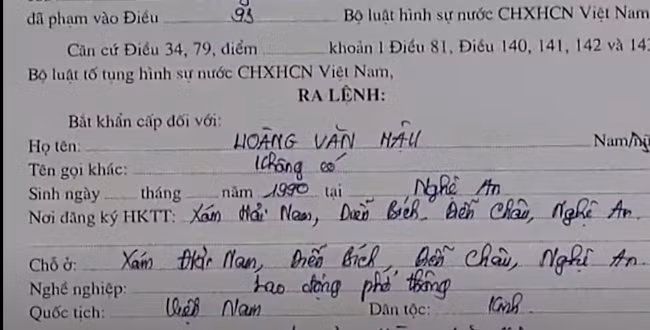 đã phạm vào Điều 93 Bộ luật hình sự nước CHXHCN Việt Nam
Căn cứ Điều 34, 79, điểm khoản 1 Điều 81, Điều 140, 141, 142 và 143
Bộ luật tố tụng hình sự nước CHXHCN Việt Nam,
RA LỆNH:
Bắt khẩn cấp đối với:
Họ tên: HOÀNG VĂN HẬU Nam/Nữ
Tên gọi khác: Không có
Sinh ngày tháng năm 1990 tại Nghệ An
Nơi đăng ký HKTT: Xóm Hải Nam, Diễn Bích, Diễn Châu, Nghệ An.
Chỗ ở: Xóm Hải Nam, Diễn Bích, Diễn Châu, Nghệ An.
Nghề nghiệp: Lao động phổ thông
Quốc tịch: Việt Nam Dân tộc: Kinh.